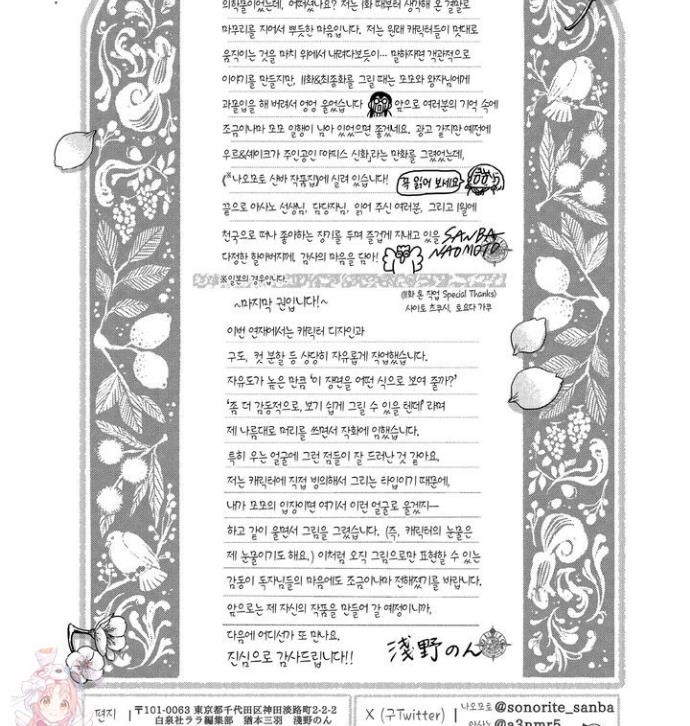 의학물이었는데, 어떠셨나요? 저는 1화 때부터 생각해 온 결말로
마무리를 지어서 뿌듯한 마음입니다. 저는 원래 캐릭터들이 멋대로
움직이는 것을 마치 위에서 내려다보듯이… 말하자면 객관적으로
이야기를 만들지만, 11화&최종화를 그릴 때는 모모와 왕자님에게
과몰입을 해 버려서 엉엉 울었습니다 앞으로 여러분의 기억 속에
조금이나마 모모 일행이 남아 있었으면 좋겠네요. 광고 같지만 예전에
우르&셰이크가 주인공인 「아피스 신화」라는 만화를 그렸었는데,
(*나오모토 산바 작품집)에 실려 있습니다! 꼭 읽어 보세요
끝으로 아사노 선생님, 담당자님, 읽어 주신 여러분, 그리고 1월에
천국으로 떠나 좋아하는 장기를 두며 즐겁게 지내고 있을
다정한 할아버지께, 감사의 마음을 담아!
SANBA
NAOMOTO
※일본의 경우입니다.
(11화 톤 작업 Special Thanks)
사이토 츠쿠시, 토요다 가쿠
~마지막 권입니다!~
이번 연재에서는 캐릭터 디자인과
구도, 컷 분할 등 상당히 자유롭게 작업했습니다.
자유도가 높은 만큼 '이 장면을 어떤 식으로 보여 줄까?'
'좀 더 감동적으로, 보기 쉽게 그릴 수 있을 텐데' 라며
제 나름대로 머리를 쓰면서 작화에 임했습니다.
특히 우는 얼굴에 그런 점들이 잘 드러난 것 같아요.
저는 캐릭터에 직접 빙의해서 그리는 타입이기 때문에,
내가 모모의 입장이면 여기서 이런 얼굴로 울겠지—
하고 같이 울면서 그림을 그렸습니다. (즉, 캐릭터의 눈물은
제 눈물이기도 해요.) 이처럼 오직 그림으로만 표현할 수 있는
감동이 독자님들의 마음에도 조금이나마 전해졌기를 바랍니다.
앞으로는 제 자신의 작품을 만들어 갈 예정이니까,
다음에 어디선가 또 만나요.
진심으로 감사드립니다!!
浅野のん
편지
〒101-0063 東京都千代田区神田淡路町2-2-2
白泉社ララ編集部 猶本三羽 浅野のん
X (구Twitter)
나오모토 @sonorite_sanba
아사노 @a3nmr5